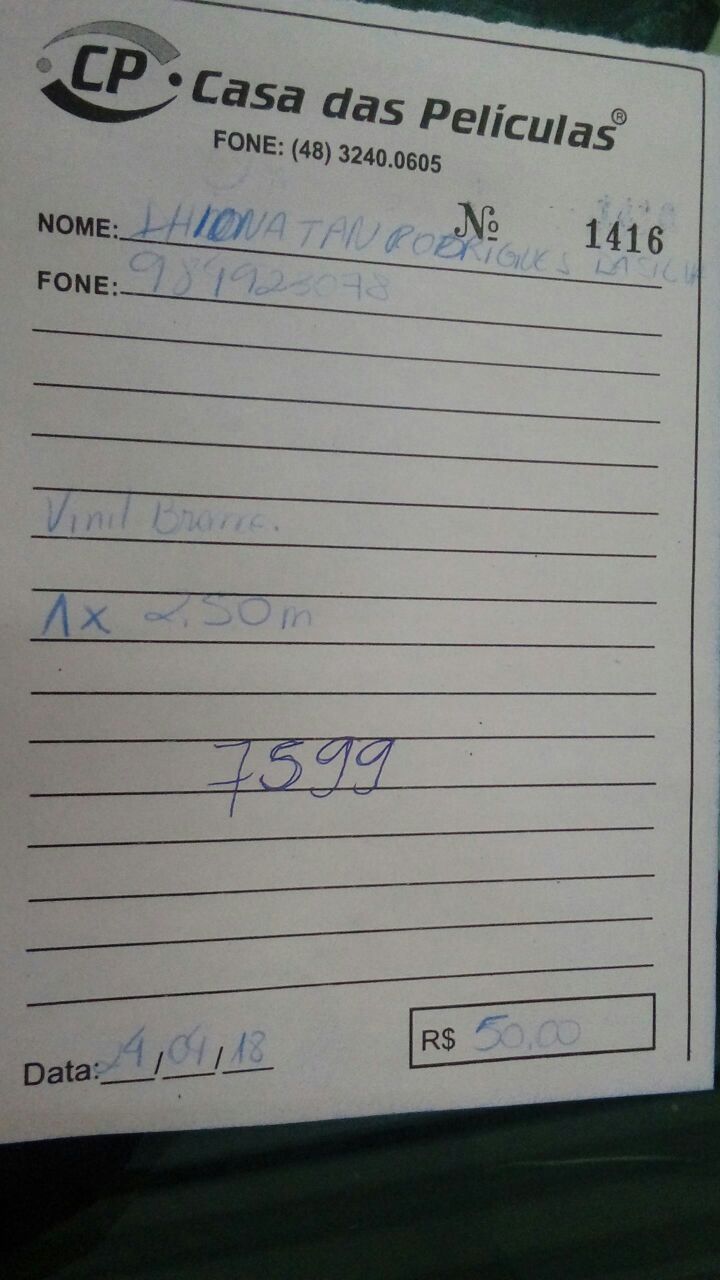 CP Casa das Películas®
FONE: (48) 3240.0605
Nº 1416
NOME: JHIONATAN RODRIGUES DA SILVA
FONE: 984923078
Vinil Branc.
1x 2,50m
7599
Data: 24/04/18
R$ 50,00